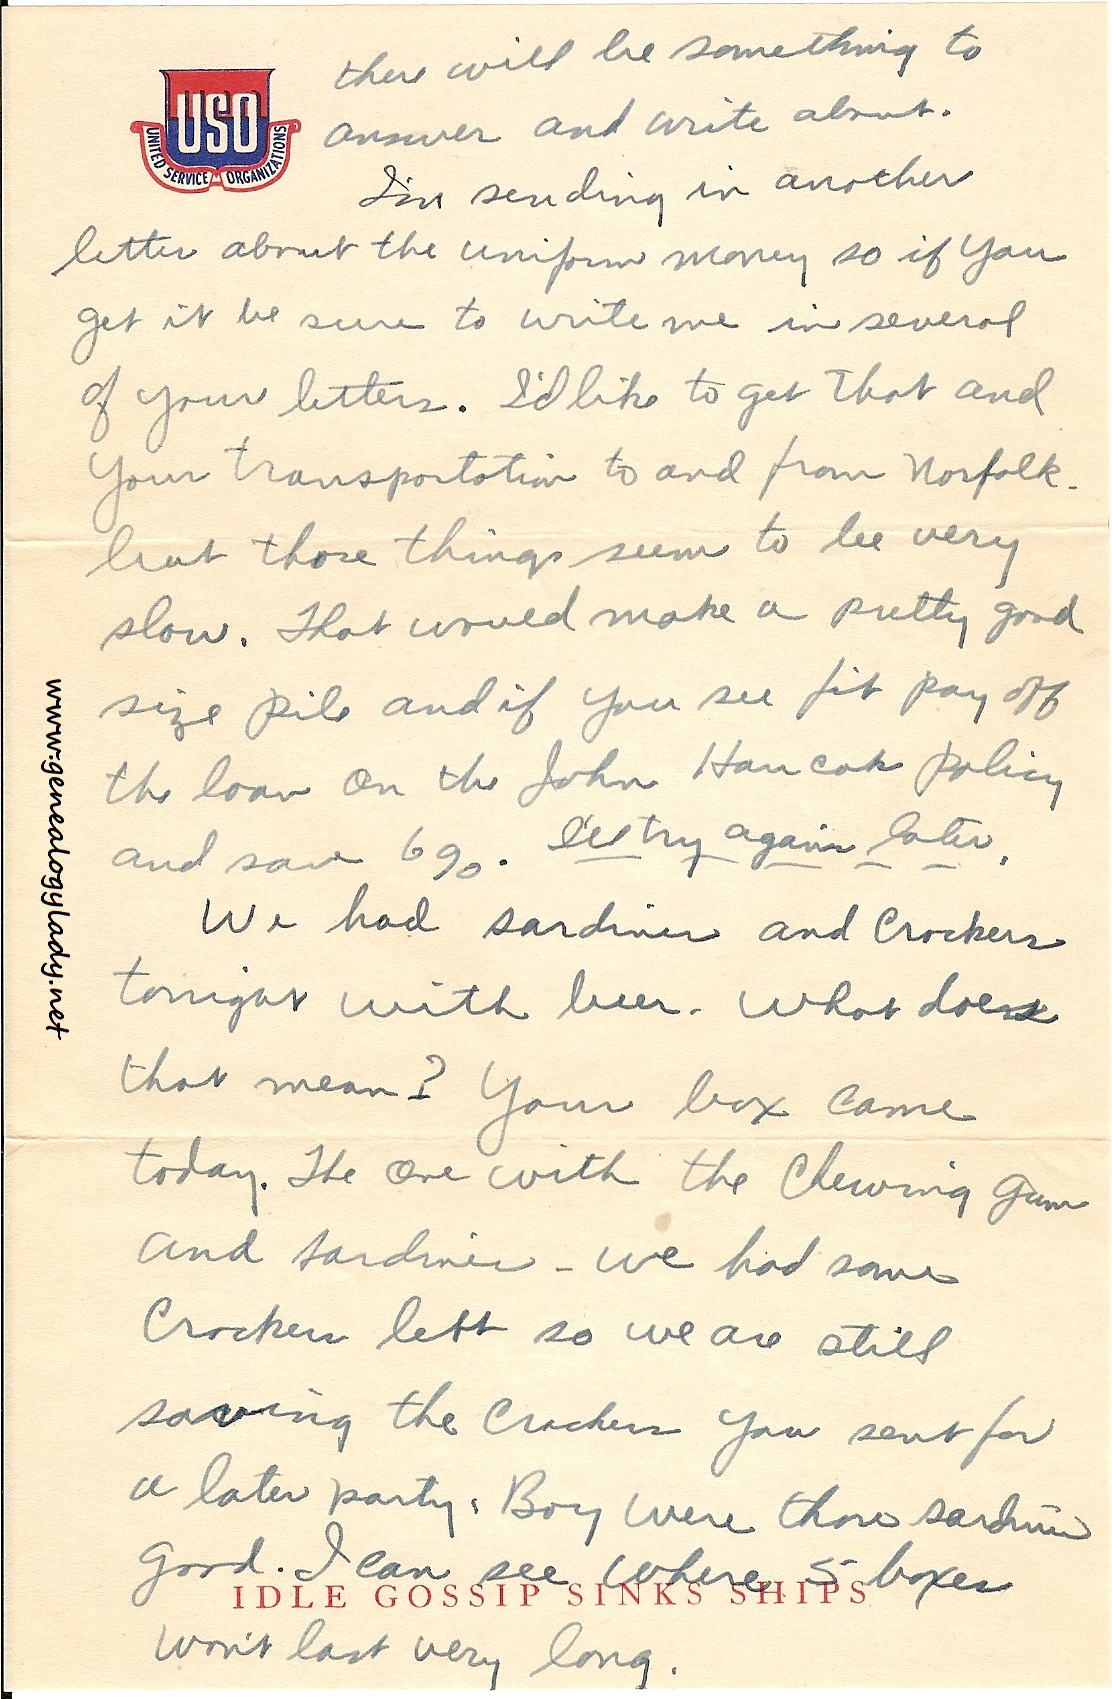 USO
UNITED SERVICE ORGANIZATIONS
there will be something to
answer and write about.
I'm sending in another
letter about the uniform money so if you
get it be sure to write me in several
of your letters. I'd like to get that and
your transportation to and from Norfolk.
but those things seem to be very
slow. That would make a pretty good
size pile and if you see fit pay off
the loan on the John Hancok policy
and save 6%. I'll try again later.
We had sardines and Crackers
tonight with beer. What does
that mean? Your box came
today. The one with the Chewing gum
and sardines - we had some
Crackers left so we are still
saving the Crackers you sent for
a later party. Boy were those sardines
good. I can see where 5 boxes
won't last very long.
IDLE GOSSIP SINKS SHIPS
www.genealogylady.net